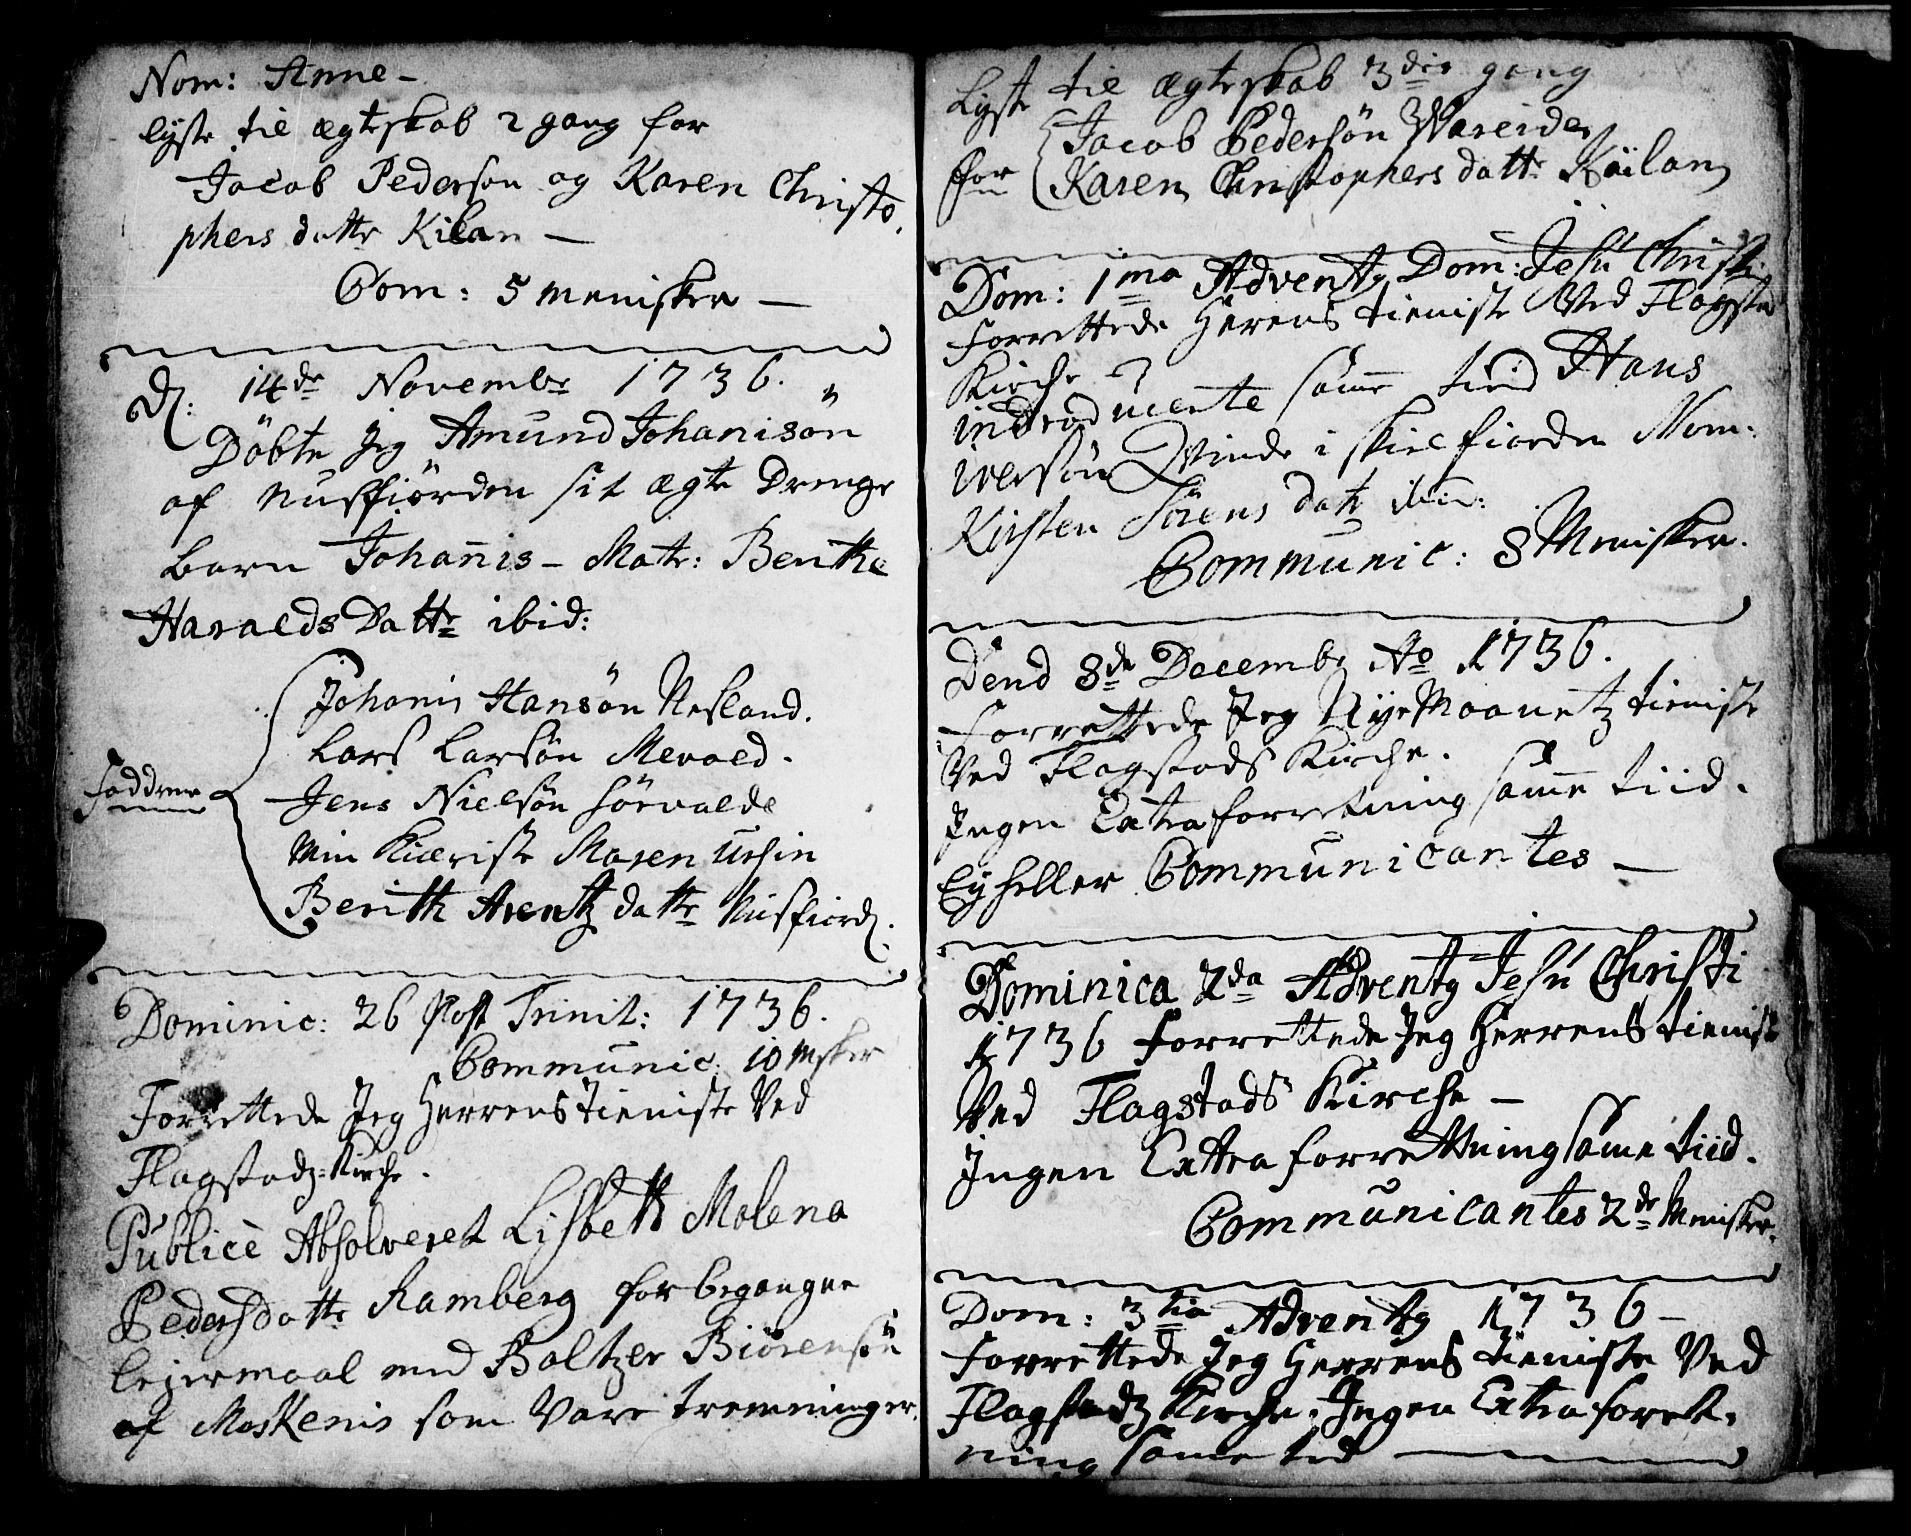 Nom: Anne –
lyste til ægteskab 2 gang for
Jacob Pederson og Karen Christo,
phers dattr Kilan –
Com: 5 menisker –
D: 14de Novembr 1736.
Döbte Jeg Amund Johanisön
af Nusfiorden sit ægte Drenge
barn Johan̄is – Matr: Beritke
Haralds Dattr ibid:
Johanis Hansøn Nesland.
Lars Larsön Mevold.
Faddrene
Jens Nielsön Sörvalde
Min Kieriste Maren Ursin
Berith Arentz dattr Nusfiord.
Dominic: 26 Post Trinit: 1736.
Communic: 10 Msker
Forrettede Jeg Herrens Tieniste Ved
Flagstadz: Kirche.
Publicè Absolveret Lisbeth Malena
Pedersdattr Ramberg for begangne
lejermaal med Baltzer Biörensön
af Moskenis som Vare tremninger.
Lyste til ægteskab 3die gang
for
Jacob Pedersön Wareide
Karen Christophers dattr Kiilan
Dom: 1ma Adventg Dom: Jesu Christi
Forrettede Herens tieniste Ved Flagsta
Kirche
introducerte sam̄e tiid Hans
iversön Qvinde i skielfiorden Nom:
Kirsten Sörens datr ibid:
Communic: 8 Menisker.
Dend 8de Decembr Ao 1736.
Forrettede Jeg Nye Maanetz tieniste
Ved Flagstads Kirche.
Ingen Extra forretning sam̄e tiid.
Ey heller Communicantes –
Dominica 2da Adventg Jesu Christi
1736 Forrettede Jeg Herrens tieniste
Ved Flagstads Kirche –
Ingen Extra forrettning same tiid.
Communicantes 2de Menisker.
Dom: 3tia Adventg 1736 –
Forrettede Jeg Herrens tieniste Ved
Flagstadz Kirche. Ingen Extra foret,
ning same tid